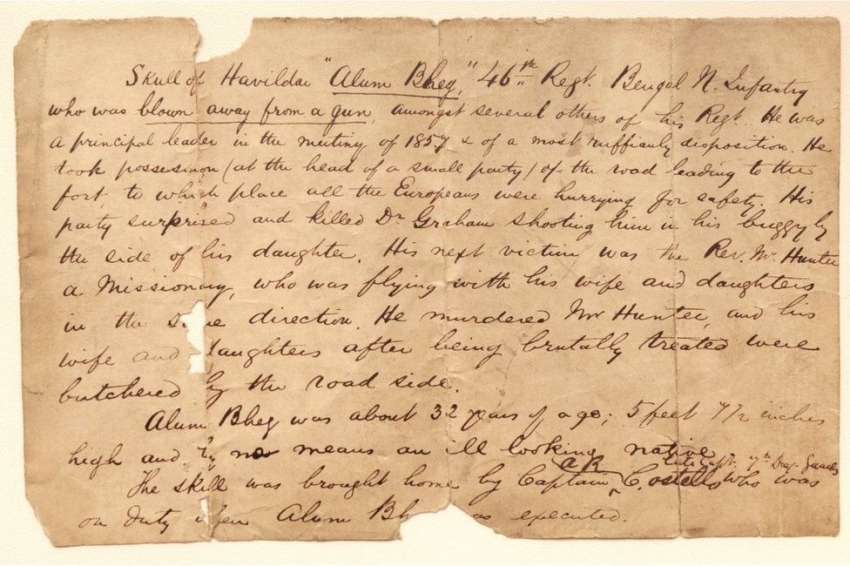 Skull of Havildar "Alum Bheg," 46th Regt. Bengal N. Infantry
who was blown away from a gun, amongst several others of his Regt. He was
a principal leader in the mutiny of 1857 & of a most ruffianly disposition. He
took possession (at the head of a small party) of the road leading to the
fort, to which place all the Europeans were hurrying for safety. His
party surprised and killed Dr. Graham shooting him in his buggy by
the side of his daughter. His next victim was the Rev. Mr. Hunter
a Missionary, who was flying with his wife and daughters
in the direction. He murdered Mr Hunter, and his
wife and daughters after being brutally treated were
butchered by the road side.
Alum Bheg was about 32 years of age; 5 feet 7 1/2 inches
high and by no means an ill looking native
The skull was brought home by Captain AR Costello late Capt. 7th Drag. Guards who was
on duty when Alum Bh as executed.